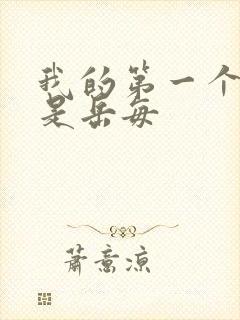 我的第一个
是岳每
萧意凉